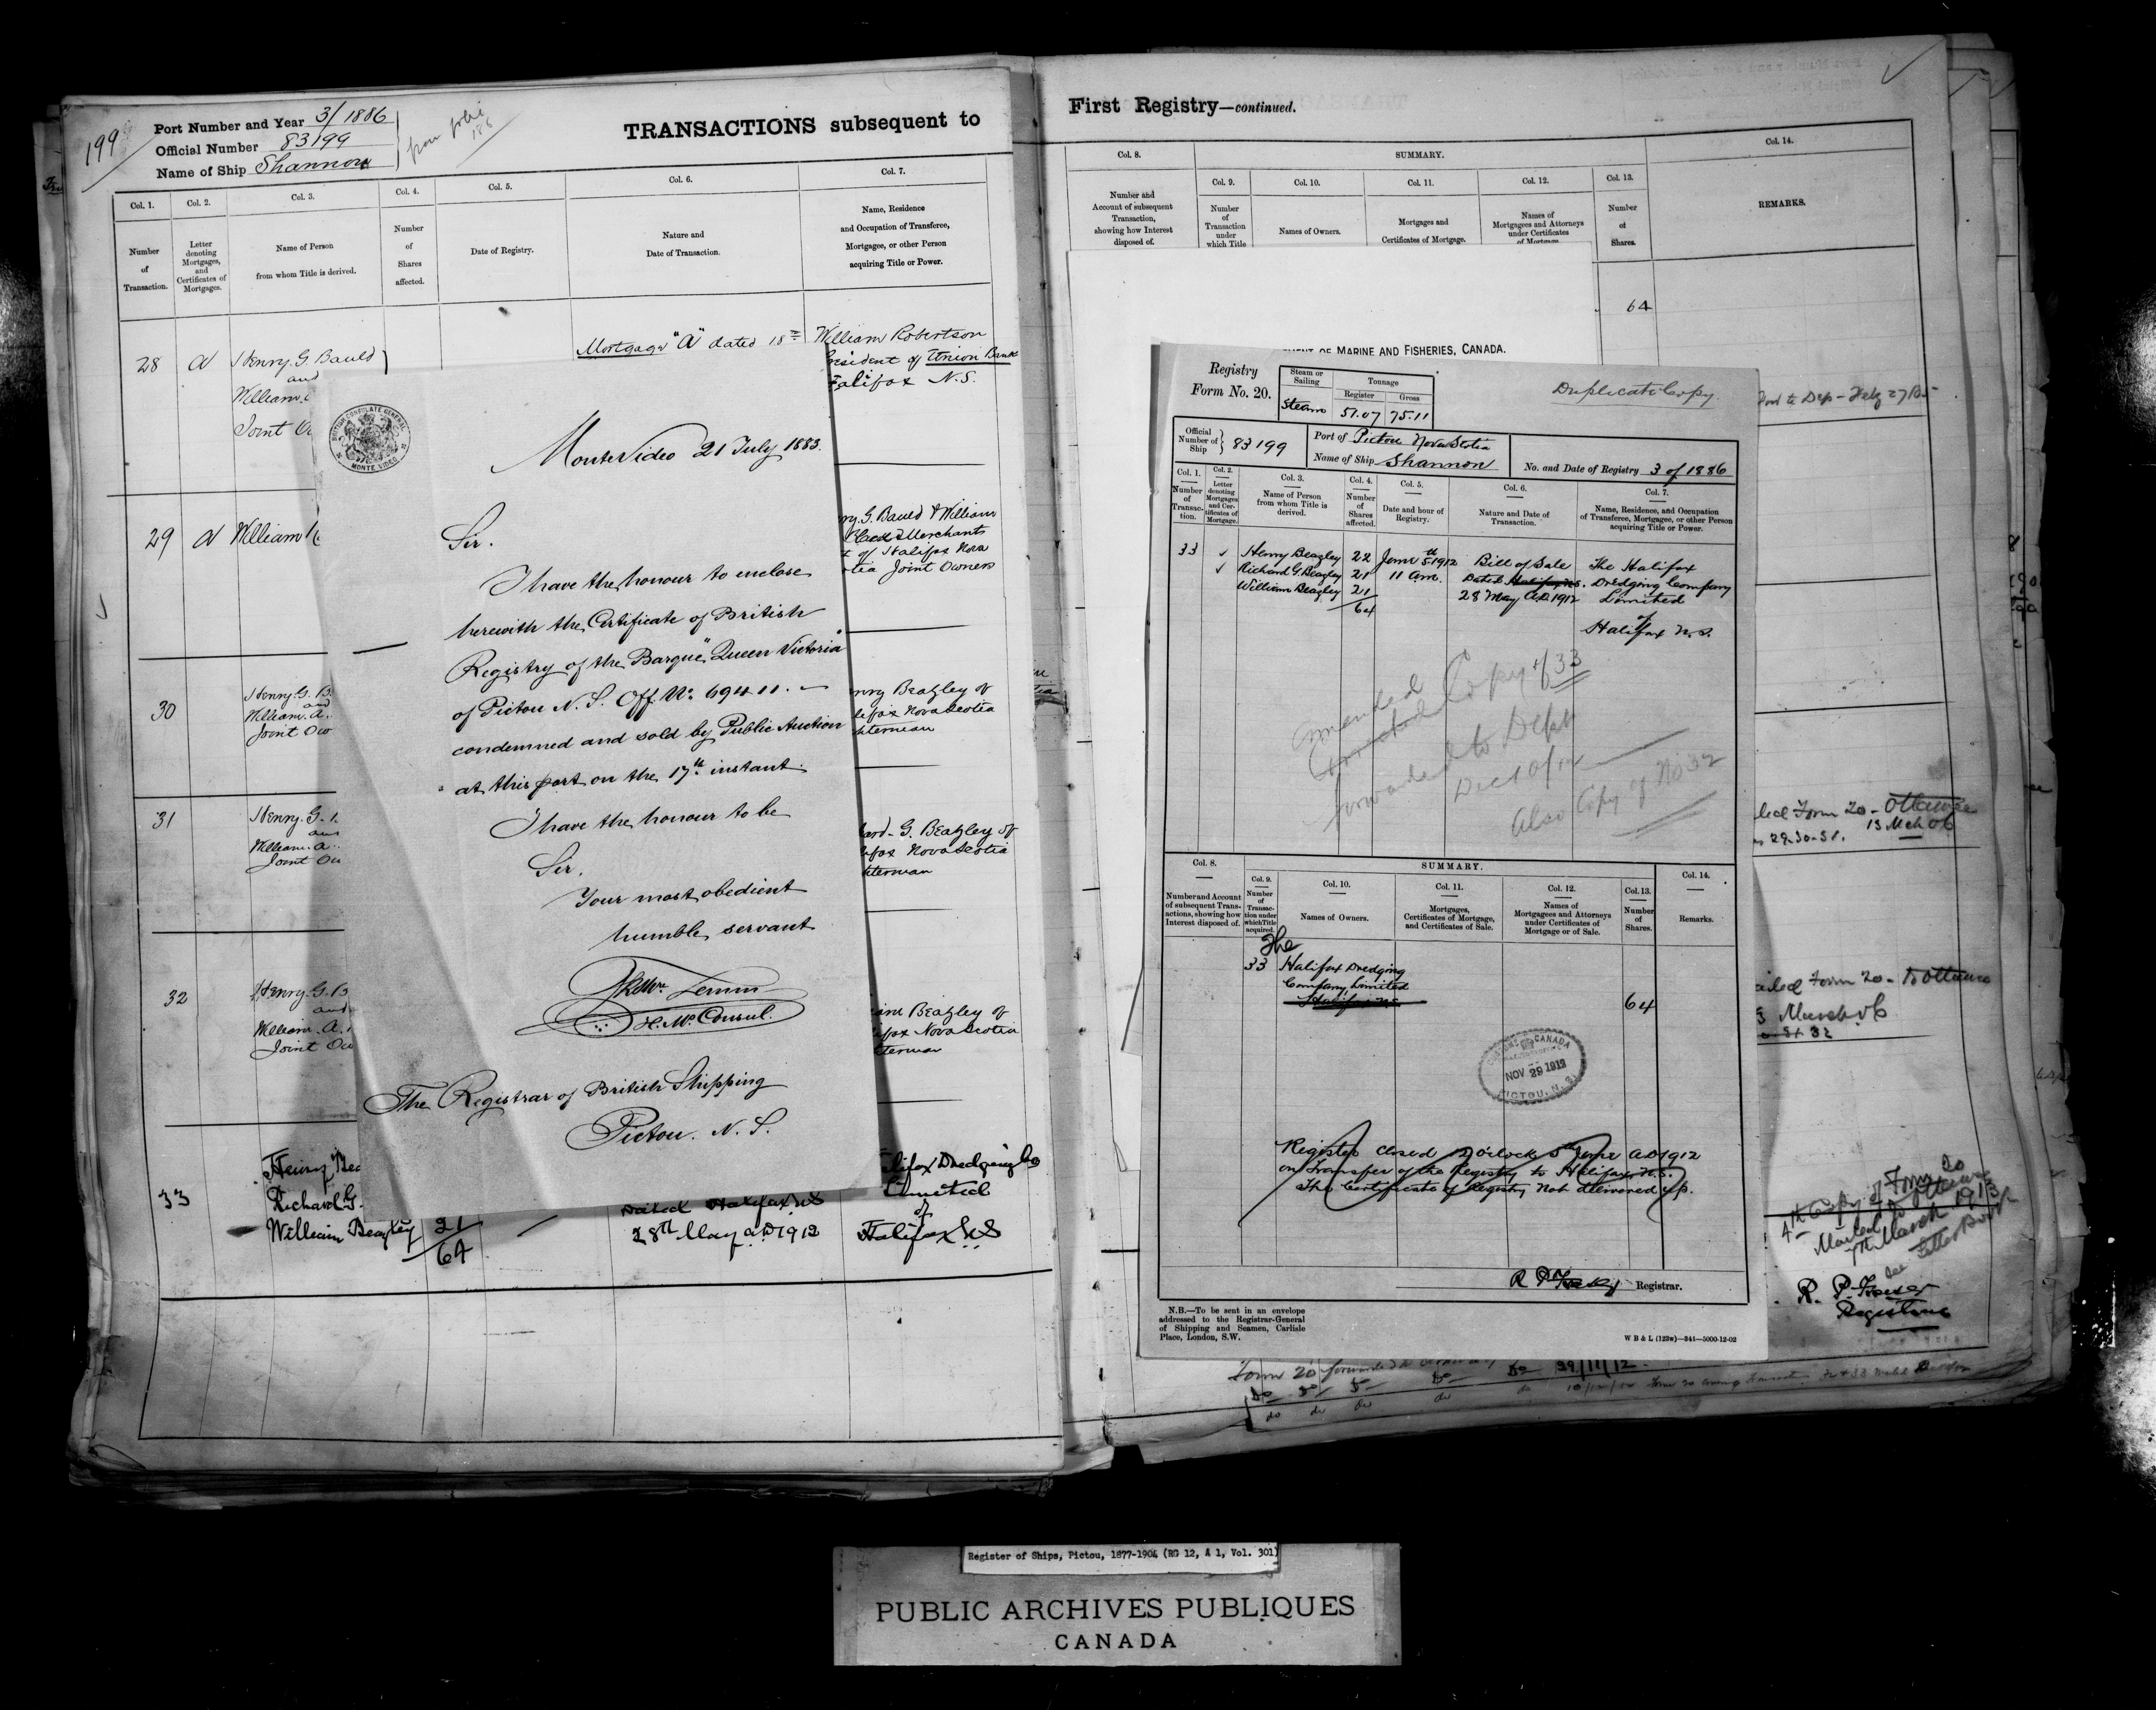 199
Port Number and Year 3/1886
Official Number 83199
Name of Ship Shannon
from folio
TRANSACTIONS subsequent to
Col. 1.
Number
of
Transaction.
Col. 2.
Letter
denoting
Mortgages,
and
Certificates of
Mortgages.
Col. 3.
Name of Person
from whom Title is derived.
Col. 4.
Number
of
Shares
affected.
Col. 5.
Date of Registry.
Col. 6.
Nature and
Date of Transaction.
Col. 7.
Name, Residence
and Occupation of Transferee,
Mortgagee, or other Person
acquiring Title or Power.
28 A Henry. G. Bauld
and
William.
Joint
Mortgage "A" dated 18th
William Robertson
President of Union Bank
Halifax N.S.
29 A William
G. Bauld & William
Merchants
of Halifax Nova
Joint Owners
30 Henry. G.
and
William. A.
Joint
Beazley of
Nova Scotia
31 Henry. G.
William. A.
Joint
G. Beazley of
Nova Scotia
32 Henry. G.
and
William. A.
Joint
Beazley of
Nova Scotia
33 Henry
Richard G.
William Beazley 21
64
Dated Halifax NS
28th May A.D 1912
Halifax Dredging Co
Limited
of
Halifax N.S
BRITISH CONSULATE GENERAL
MONTE VIDEO
Monte Video 21 July 1883.
Sir.
I have the honour to enclose
herewith the Certificate of British
Registry of the Barque "Queen Victoria"
of Pictou N. S. Off. No. 69411. —
condemned and sold by Public Auction
at this port on the 17th instant.
I have the honour to be
Sir.
Your most obedient
humble servant
H. M. Consul.
The Registrar of British Shipping
Pictou. N. S.
First Registry—continued.
Col. 8.
Number and
Account of subsequent
Transaction,
showing how Interest
disposed of.
SUMMARY.
Col. 9.
Number
of
Transaction
under
which Title
Col. 10.
Names of Owners.
Col. 11.
Mortgages and
Certificates of Mortgage.
Col. 12.
Names of
Mortgagees and Attorneys
under Certificates
of Mortgage
Col. 13.
Number
of
Shares.
Col. 14.
REMARKS.
64
OF MARINE AND FISHERIES, CANADA.
Registry
Form No. 20.
Steam or
Sailing
Steam
Tonnage
Register Gross
51.07 75.11
Duplicate Copy.
Official
Number of
Ship
83199
Port of Pictou Nova Scotia
Name of Ship Shannon
No. and Date of Registry 3 of 1886
Col. 1.
Number
of
Transac-
tion.
Col. 2.
Letter
denoting
Mortgages
and Cer-
tificates of
Mortgage.
Col. 3.
Name of Person
from whom Title is
derived.
Col. 4.
Number
of
Shares
affected.
Col. 5.
Date and hour of
Registry.
Col. 6.
Nature and Date of
Transaction.
Col. 7.
Name, Residence, and Occupation
of Transferee, Mortgagee, or other Person
acquiring Title or Power.
33 Henry Beazley 22 June 5th 1912 Bill of Sale The Halifax
Richard G. Beazley 21 11 am. Dated Halifax N.S. Dredging Company
William Beazley 21 28 May A.D. 1912 Limited
64 of
Halifax N.S.
Amended Copy of 33
forwarded to Dept
Dec 10/12
Also Copy of No 32
Col. 8.
Number and Account
of subsequent Trans-
actions, showing how
Interest disposed of.
SUMMARY.
Col. 9.
Number
of
Transac-
tion under
which Title
acquired.
Col. 10.
Names of Owners.
Col. 11.
Mortgages,
Certificates of Mortgage,
and Certificates of Sale.
Col. 12.
Names of
Mortgagees and Attorneys
under Certificates of
Mortgage or of Sale.
Col. 13.
Number
of
Shares.
Col. 14.
Remarks.
The
33 Halifax Dredging
Company Limited
Halifax N.S.
64
CUSTOMS CANADA
NOV 29 1912
PICTOU, N.S.
Register closed 12 o'clock 5th June A.D 1912
on Transfer of the Registry to Halifax N.S.
The Certificate of Registry not delivered up.
Registrar.
N.B.—To be sent in an envelope
addressed to the Registrar-General
of Shipping and Seamen, Carlisle
Place, London, S.W.
W B & L (123w)—341—5000-12-02
to Dep - Feby 27
Form 20 - Ottawa
29-30-31. 13 Mch 06
Form 20 - to Ottawa
March 06
32
4th Copy of Form 20
Mailed to Ottawa
7th March 1913
see
Letter Book
R. P. Fraser
Registrar
Form 20 forwarded 29/11/12.
Register of Ships, Pictou, 1877-1904 (RG 12, A 1, Vol. 301)
PUBLIC ARCHIVES PUBLIQUES
CANADA